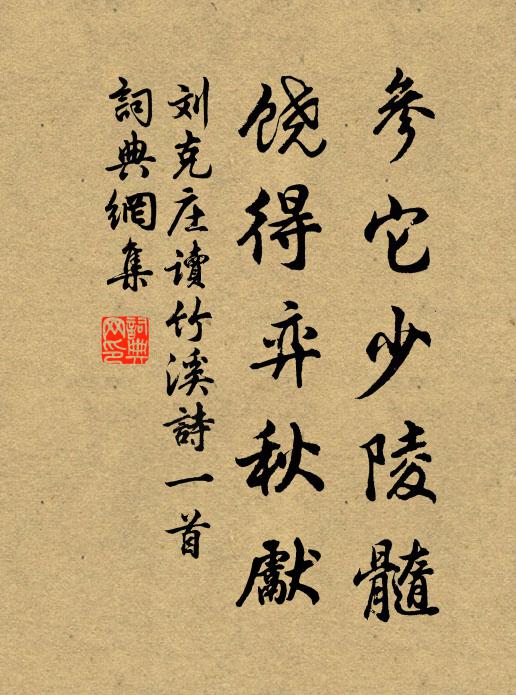 参它少陵髓
饶得弈秋献
刘克庄读竹溪詩一首
詞典網集
詞典
网印